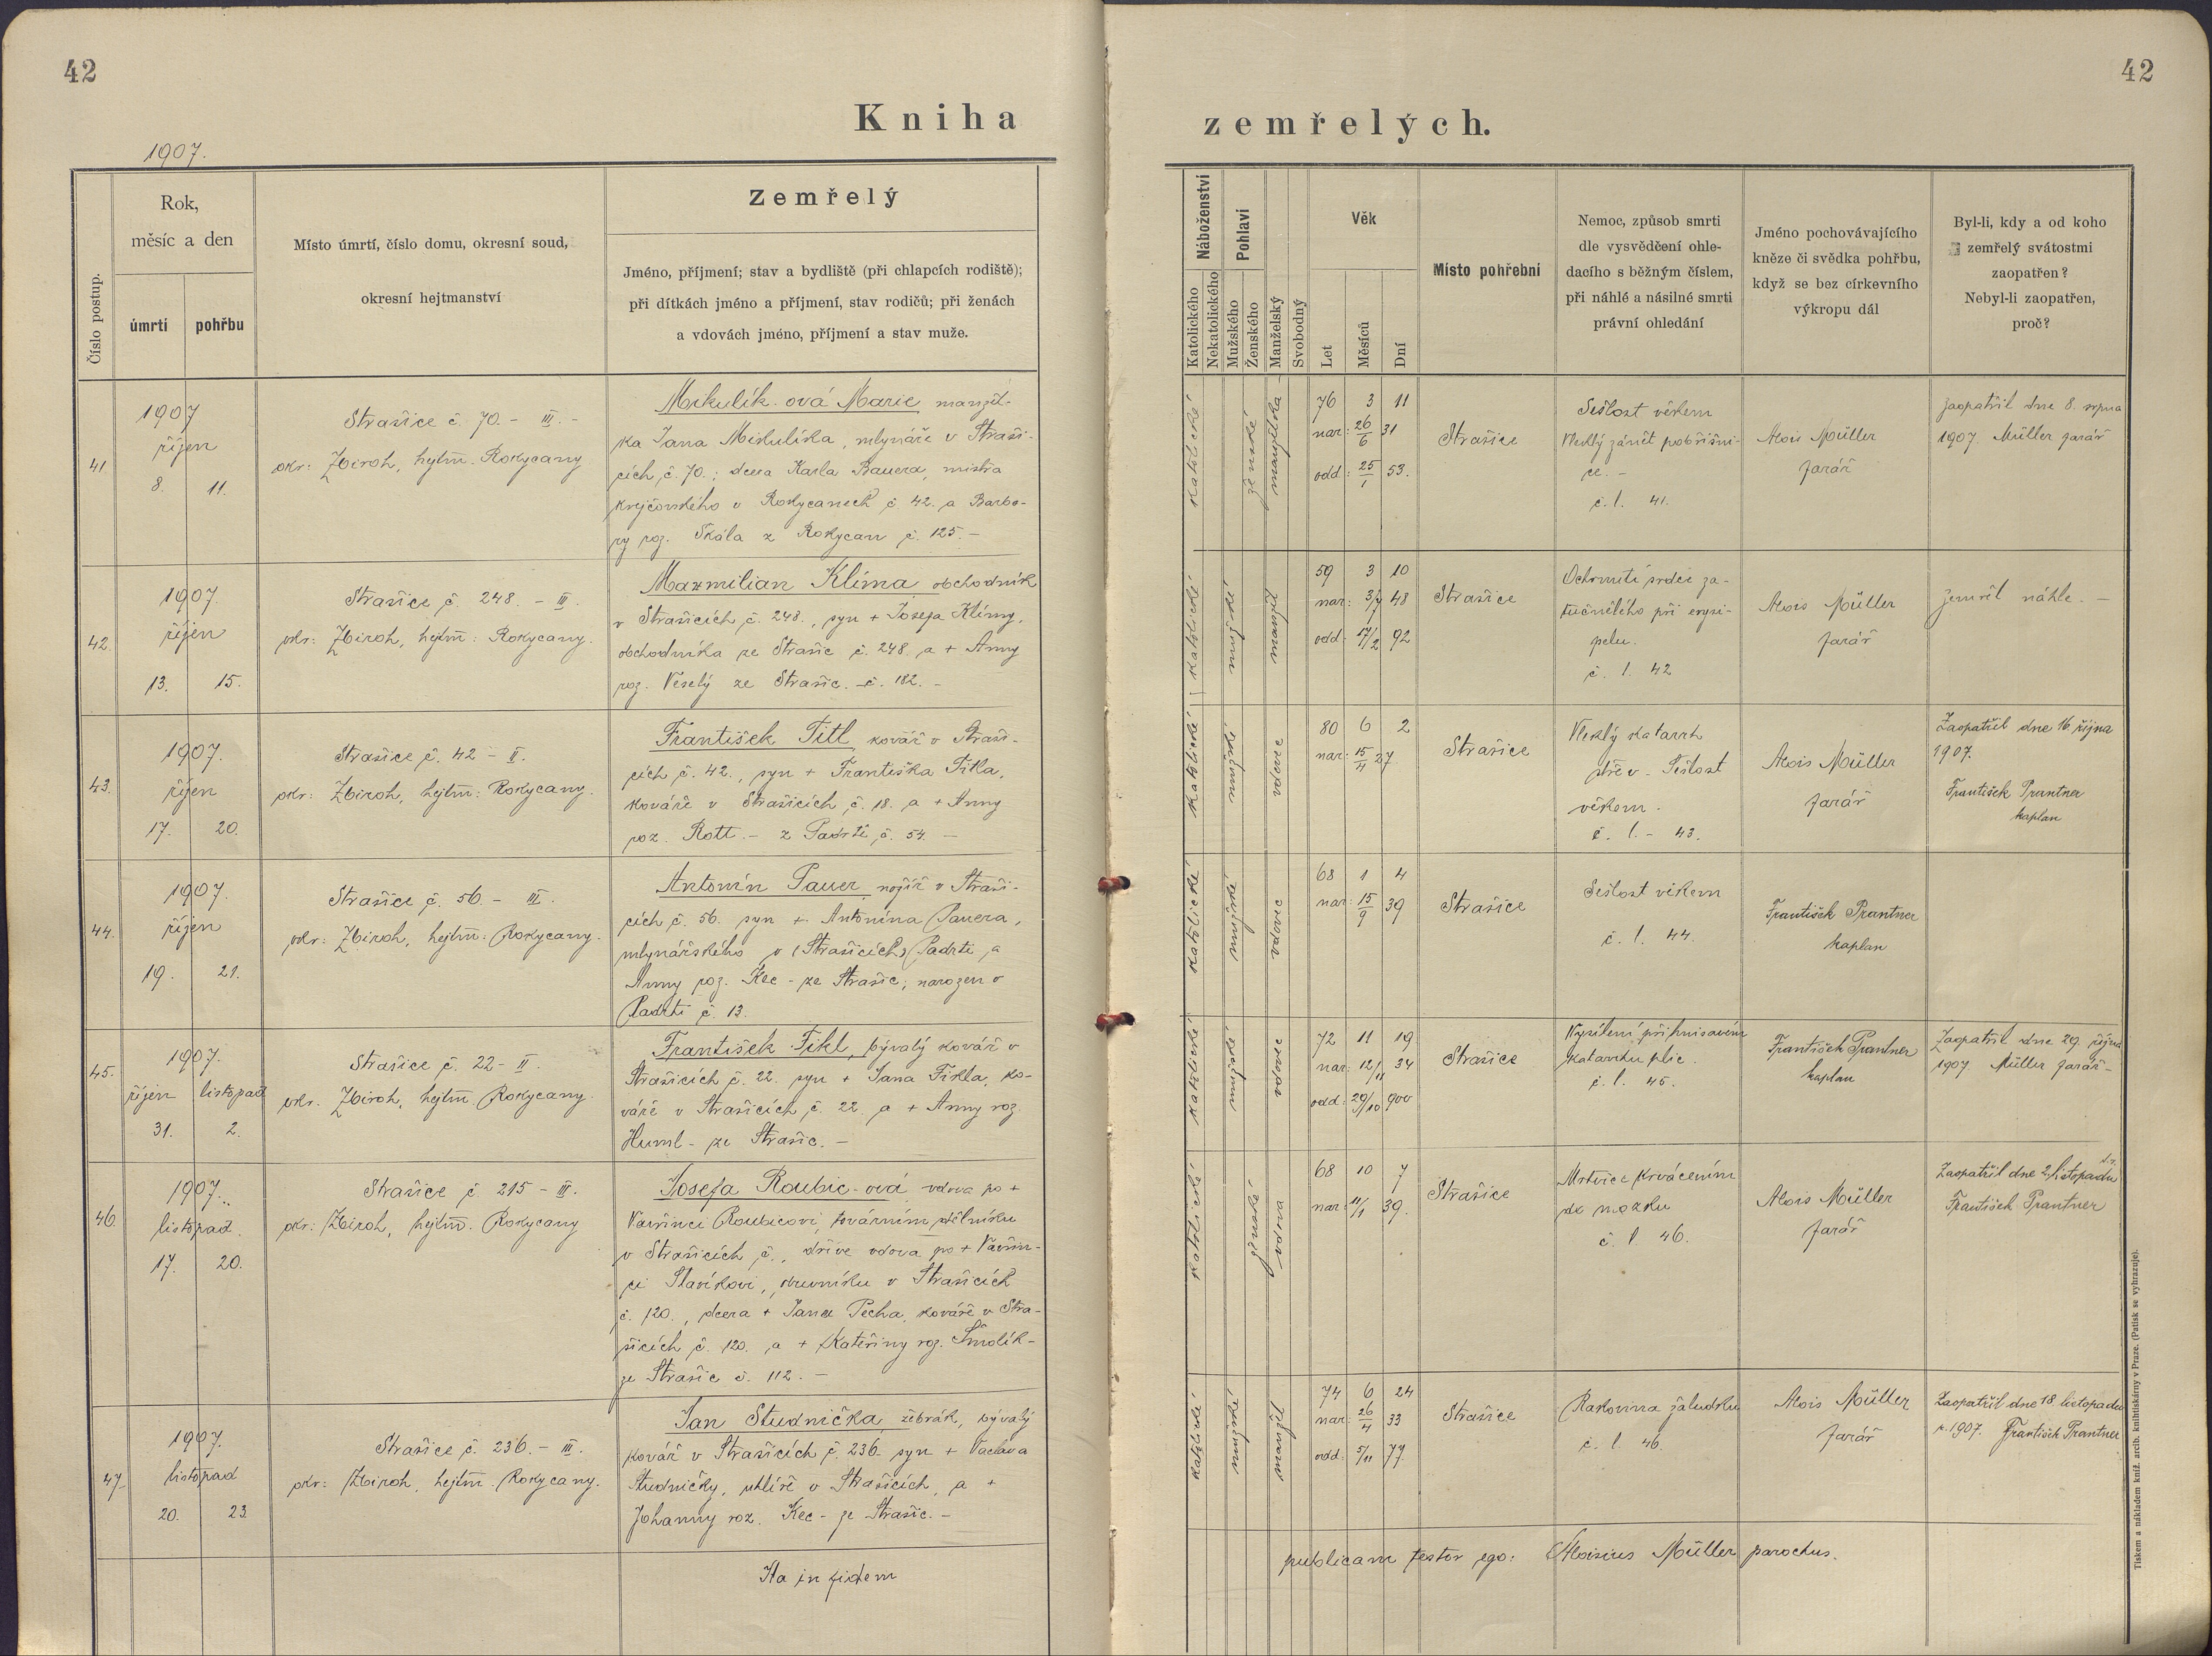 42
42
Kniha zemřelých.
1907.
Číslo postup.
Rok,
měsíc a den
úmrtí
pohřbu
Místo úmrtí, číslo domu, okresní soud,
okresní hejtmanství
Zemřelý
Jméno, příjmení; stav a bydliště (při chlapcích rodiště);
při dítkách jméno a příjmení, stav rodičů; při ženách
a vdovách jméno, příjmení a stav muže.
Náboženství
Katolického
Nekatolického
Pohlaví
Mužského
Ženského
Manželský
Svobodný
Věk
Let
Měsíců
Dní
Místo pohřební
Nemoc, způsob smrti
dle vysvědčení ohle-
dacího s běžným číslem,
při náhlé a násilné smrti
právní ohledání
Jméno pochovávajícího
kněze či svědka pohřbu,
když se bez církevního
výkropu dál
Byl-li, kdy a od koho
zemřelý svátostmi
zaopatřen?
Nebyl-li zaopatřen,
proč?
41.
1907
říjen
8. 11.
Strašice č. 70. - III. -
okr: Zbiroh, hejtm. Rokycany
Mikulík-ová Marie manžel-
ka Jana Mikulíka, mlynáře v Straši-
cích, č. 70.; dcera Karla Bauera, mistra
krejčovského v Rokycanech č. 42. a Barbo-
ry roz. Skála z Rokycan č. 125. -
katolické
ženské
manželka
76 3 11
nar: 26/6 31
odd: 25/1 53.
Strašice
Sešlost věkem
Vleklý zánět pobřišni-
ce. -
č. l. 41.
Alois Müller
farář
Zaopatřil dne 8. srpna
1907. Müller farář
42.
1907.
říjen
13. 15.
Strašice č. 248. - III.
okr: Zbiroh, hejtm: Rokycany.
Maxmilian Klíma, obchodník
v Strašicích č. 248., syn + Josefa Klímy,
obchodníka ze Strašic č. 248. a + Anny
roz. Veselý ze Strašic. - č. 182. -
katolické
mužské
manžel
59 3 10
nar: 3/7 48
odd: 17/2 92
Strašice
Ochrnutí srdce za-
tučnělého při erysi-
pelu.
č. l. 42
Alois Müller
farář
Zemřel náhle. -
43.
1907.
říjen
17. 20.
Strašice č. 42 - II.
okr: Zbiroh, hejtm: Rokycany.
František Titl, kovář v Straši-
cích č. 42., syn + Františka Titla,
kováře v Strašicích č. 18. a + Anny
roz. Rott. - z Padrtě, č. 54. -
katolické
mužské
vdovec
80 6 2
nar: 15/4 27
Strašice
Vleklý katarrh
střev. Sešlost
věkem.
č. l. - 43.
Alois Müller
farář
Zaopatřil dne 16. října
1907.
František Prantner
kaplan
44.
1907.
říjen
19. 21.
Strašice č. 56. - III.
okr: Zbiroh, hejtm: Rokycany.
Antonín Pauer, nožíř v Straši-
cích č. 56. syn + Antonína Pauera,
mlynářského v (Strašicích) Padrti, a
Anny roz. Kec - ze Strašic; narozen v
Padrti č. 13.
katolické
mužské
vdovec
68 1 4
nar: 15/9 39
Strašice
Sešlost věkem
č. l. 44.
František Prantner
kaplan
45.
1907.
říjen listopad
31. 2.
Strašice č. 22 - II.
okr. Zbiroh, hejtm. Rokycany
František Fikl, bývalý kovář v
Strašicích č. 22. syn + Jana Fikla, ko-
váře v Strašicích č. 22. a + Anny roz.
Huml - ze Strašic. -
katolické
mužské
vdovec
72 11 19
nar: 12/11 34
odd: 29/10 900
Strašice
Vysílení při hnisavém
katarrhu plic.
č. l. 45.
František Prantner
kaplan
Zaopatřil dne 29. října
1907. Müller farář -
46.
1907.
listopad.
17. 20.
Strašice č. 215 - III.
okr: Zbiroh, hejtm. Rokycany
Josefa Roubic-ová, vdova po +
Vavřinci Roubicovi, továrním dělníku
v Strašicích č., dříve vdova po + Vavřin-
ci Slavíkovi, obuvníku v Strašicích
č. 120., dcera + Jana Pecha, kováře v Stra-
šicích č. 120. a + Kateřiny roz. Smolík -
ze Strašic č. 112. -
katolické
ženské
vdova
68 10 7
nar: 11/1 39.
Strašice
Mrtvice krvácením
do mozku
č. l. 46.
Alois Müller
farář
Zaopatřil dne 2. listopadu
František Prantner
47.
1907.
listopad
20. 23
Strašice č. 236. - III.
okr: Zbiroh, hejtm. Rokycany.
Jan Studnička, žebrák, bývalý
kovář v Strašicích č. 236. syn + Václava
Studničky, uhlíře v Strašicích, a +
Johanny roz. Kec - ze Strašic. -
katolické
mužské
manžel
74 6 24
nar: 26/4 33
odd: 5/11 77
Strašice
Rakovina žaludku
č. l. 46.
Alois Müller
farář
Zaopatřil dne 18. listopadu
r. 1907. František Prantner
Ita in fidem publicam testor ego: Aloisius Müller parochus.
Tiskem a nákladem kníž. arcib. knihtiskárny v Praze. (Patisk se vyhrazuje).